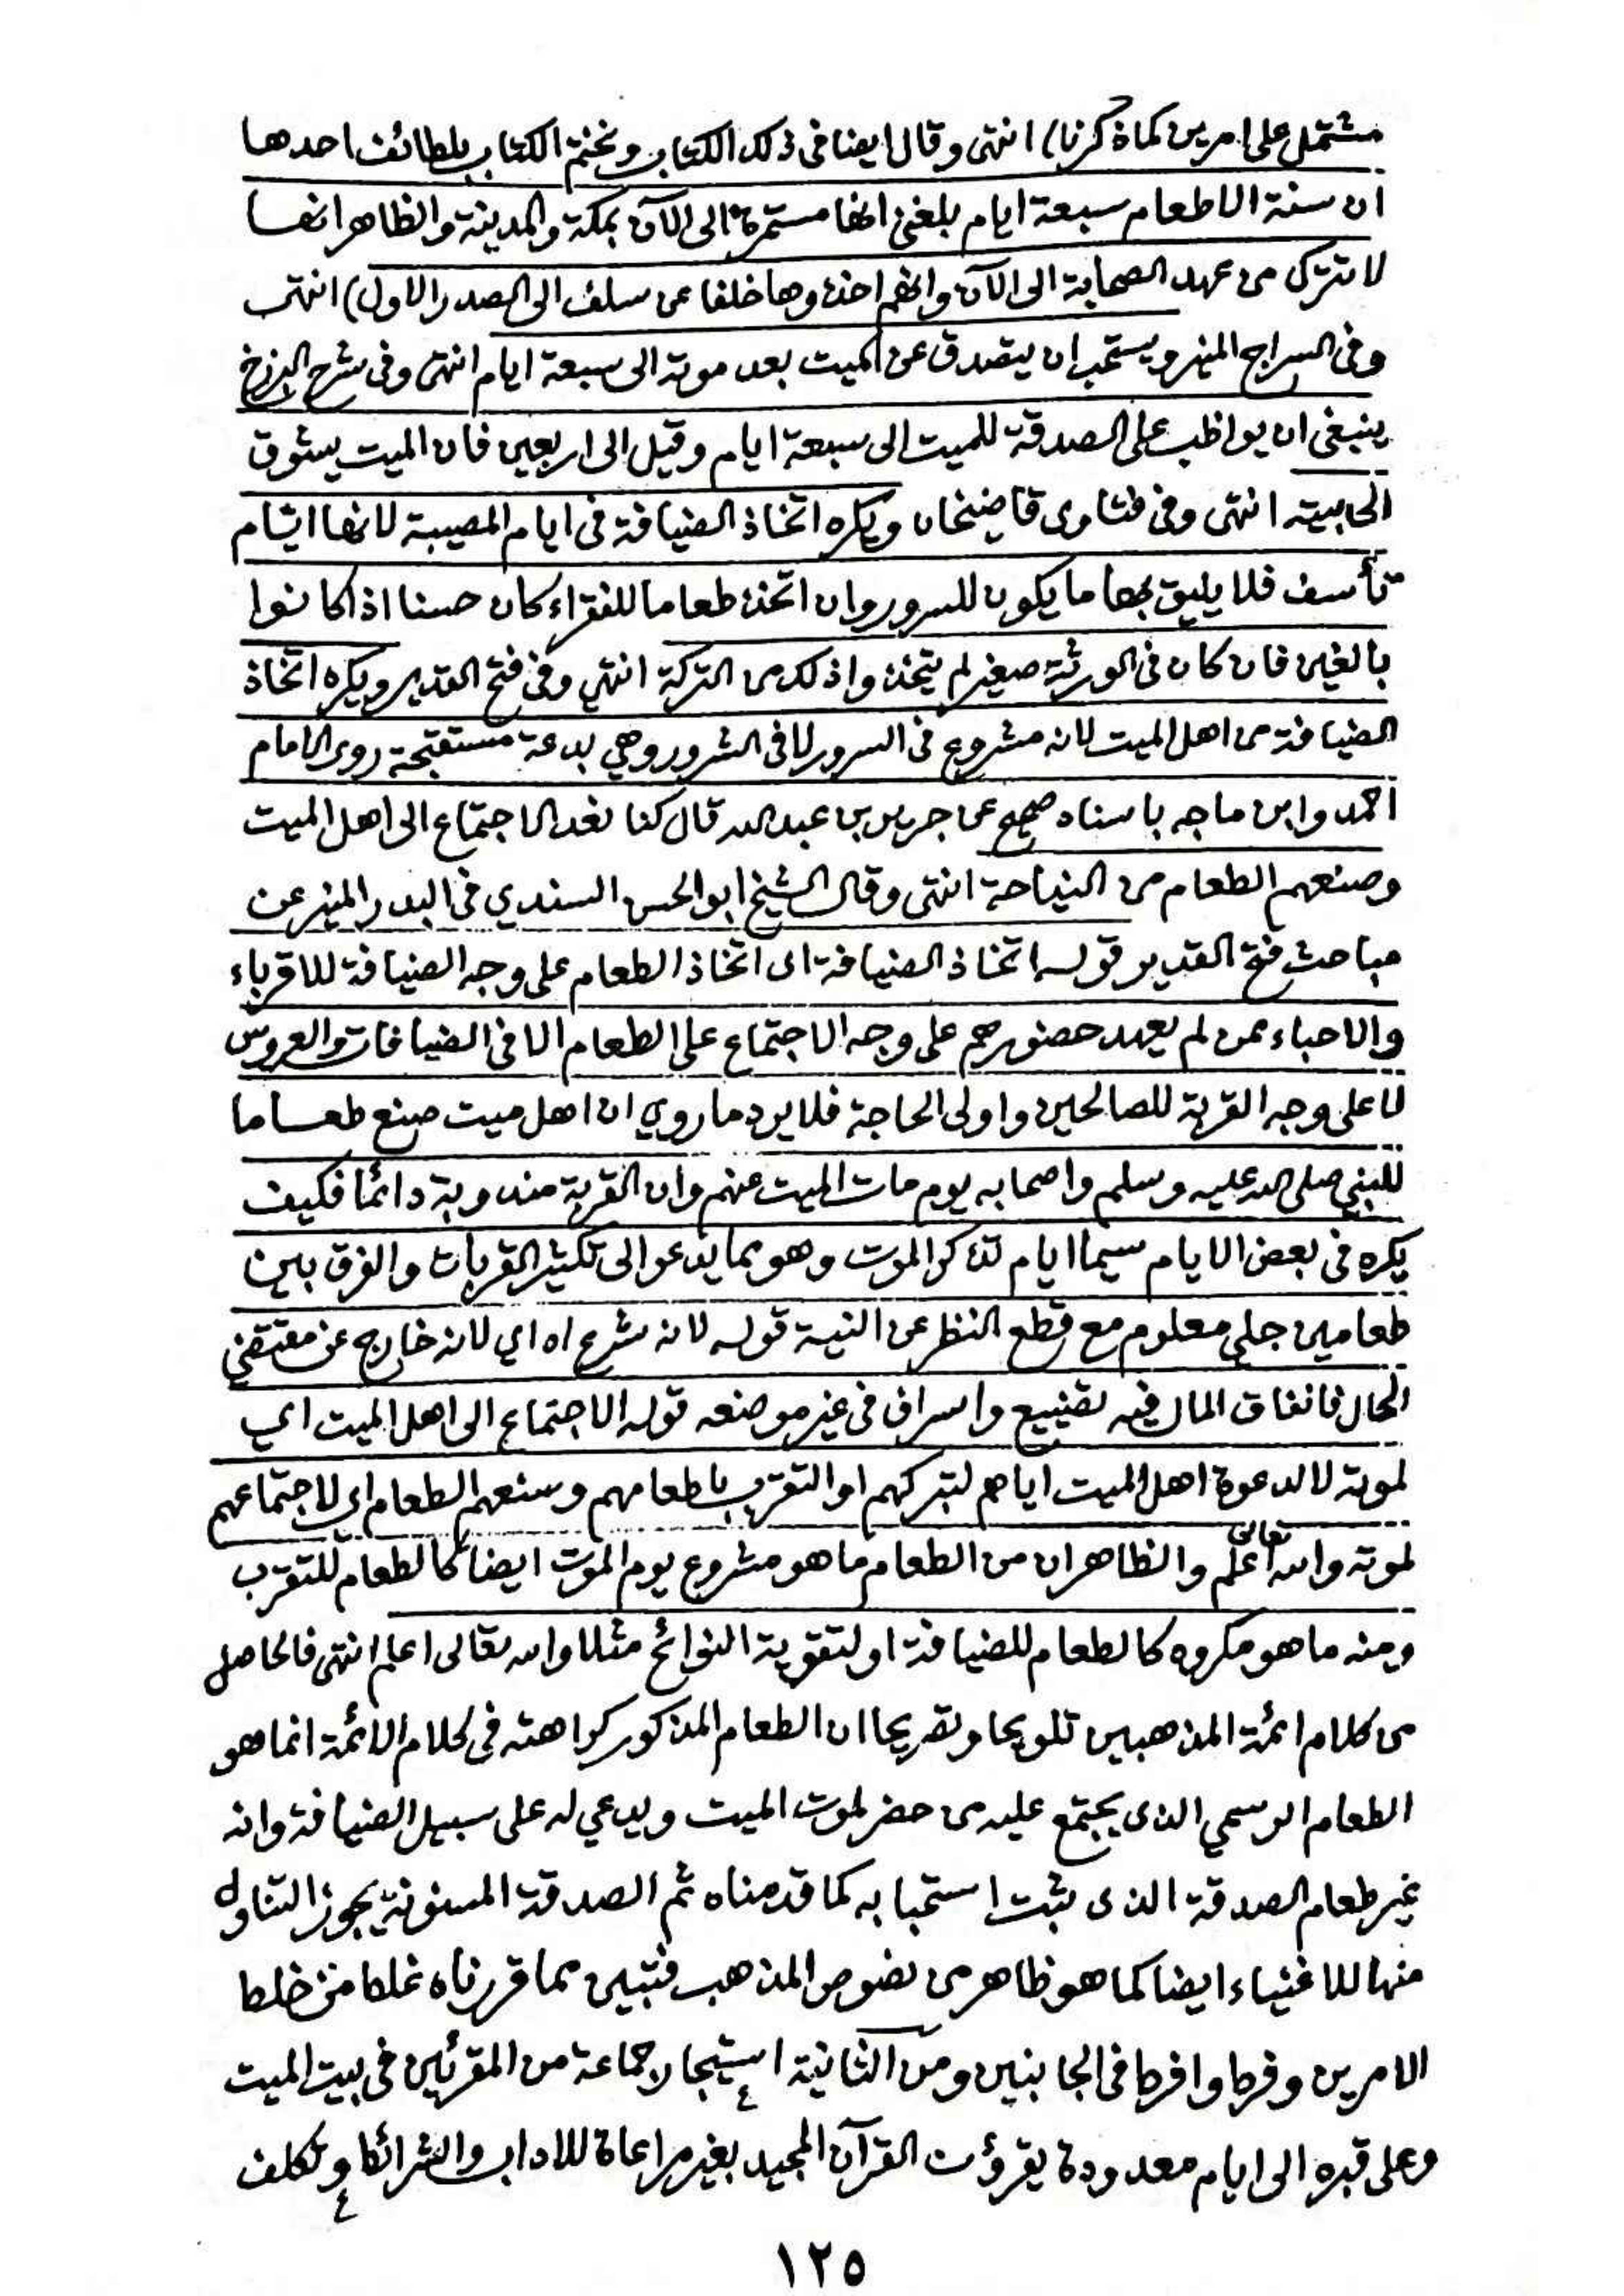 مشتمل على امرين كما ذكرنا) انتهى وقال ايضا فى ذلك الكتاب ونختم الكتاب بلطائف احدها
ان سنة الاطعام سبعة ايام بلغنى انها مستمرة الى الآن بمكة والمدينة والظاهر انها
لا تترك من عهد الصحابة الى الآن وانهم اخذوها خلفا عن سلف الى الصدر الاول) انتهى
وفى السراج المنير ويستحب ان يتصدق عن الميت بعد موته الى سبعة ايام انتهى وفى شرح البرزخ
ينبغى ان يواظب على الصدقة للميت الى سبعة ايام وقيل الى اربعين فان الميت يشوق
الى بيته انتهى وفى فتاوى قاضيخان ويكره اتخاذ الضيافة فى ايام المصيبة لانها ايام
تأسف فلا يليق بها ما يكون للسرور وان اتخذ طعاما للفقراء كان حسنا اذا كانوا
بالغين فان كان فى الورثة صغير لم يتخذوا ذلك من التركة انتهى وفى فتح القدير ويكره اتخاذ
الضيافة من اهل الميت لانه مشروع فى السرور لا فى الشرور وهي بدعة مستقبحة روى الامام
احمد وابن ماجه باسناد صحيح عن جرير بن عبد الله قال كنا نعد الاجتماع الى اهل الميت
وصنعهم الطعام من النياحة انتهى وقال الشيخ ابو الحسن السندي فى البدر المنير عن
مباحث فتح القدير قوله اتخاذ الضيافة اى اتخاذ الطعام على وجه الضيافة للاقرباء
والاحباء ممن لم يعهد حضورهم على وجه الاجتماع على الطعام الا فى الضيافات والعروس
لا على وجه القربة للصالحين واولى الحاجة فلا يرد ما روي ان اهل ميت صنع طعاما
للنبي صلى الله عليه وسلم واصحابه يوم مات الميت عنهم وان القربة مندوبة دائما فكيف
يكره فى بعض الايام سيما ايام تذكر الموت وهو مما يدعو الى تكثير القربات والفرق بين
طعامين جلي معلوم مع قطع النظر عن النية قوله لانه شرع اه اي لانه خارج عن مقتضي
الحال فانفاق المال فيه تضييع واسراف فى غير موضعه قوله الاجتماع الى اهل الميت اي
لموته لا لدعوة اهل الميت اياهم لتبركهم او التقرب باطعامهم وصنعهم الطعام اي لاجتماعهم
لموته والله تعالى اعلم والظاهر ان من الطعام ما هو مشروع يوم الموت ايضا كالطعام للتقرب
ومنه ما هو مكروه كالطعام للضيافة او لتقوية النوائح مثلا والله تعالى اعلم انتهى فالحاصل
من كلام ائمة المذهبين تلويحا وتصريحا ان الطعام المذكور كراهته فى كلام الائمة انما هو
الطعام الرسمي الذى يجتمع عليه من حضر لموت الميت ويدعي له على سبيل الضيافة وانه
غير طعام الصدقة الذى ثبت استحبابه كما قدمناه ثم الصدقة المسنونة يجوز التناول
منها للاغنياء ايضا كما هو ظاهر من نصوص المذهب فتبين مما قررناه غلط من خلط
الامرين وفرط وافرط فى الجانبين ومن الثانية استيجار جماعة من المقرئين فى بيت الميت
وعلى قبره الى ايام معدودة يقرؤن القرآن المجيد بغير مراعاة للاداب والشرائط وتكلف
١٢٥